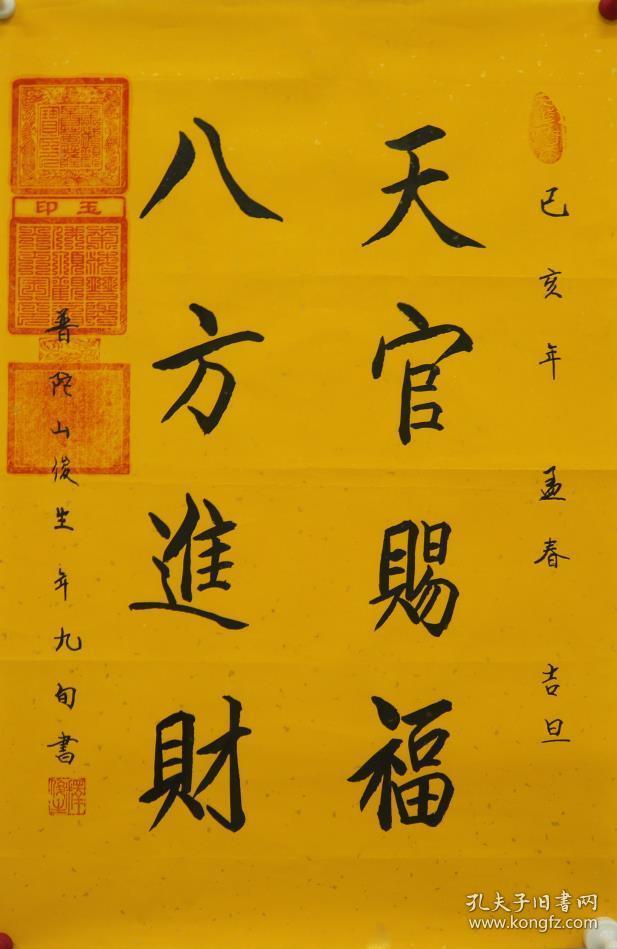 己亥年 孟春 吉旦
天官賜福
八方進財
普陀山後生 年九旬書
玉印
孔夫子旧书网
www.kongfz.com